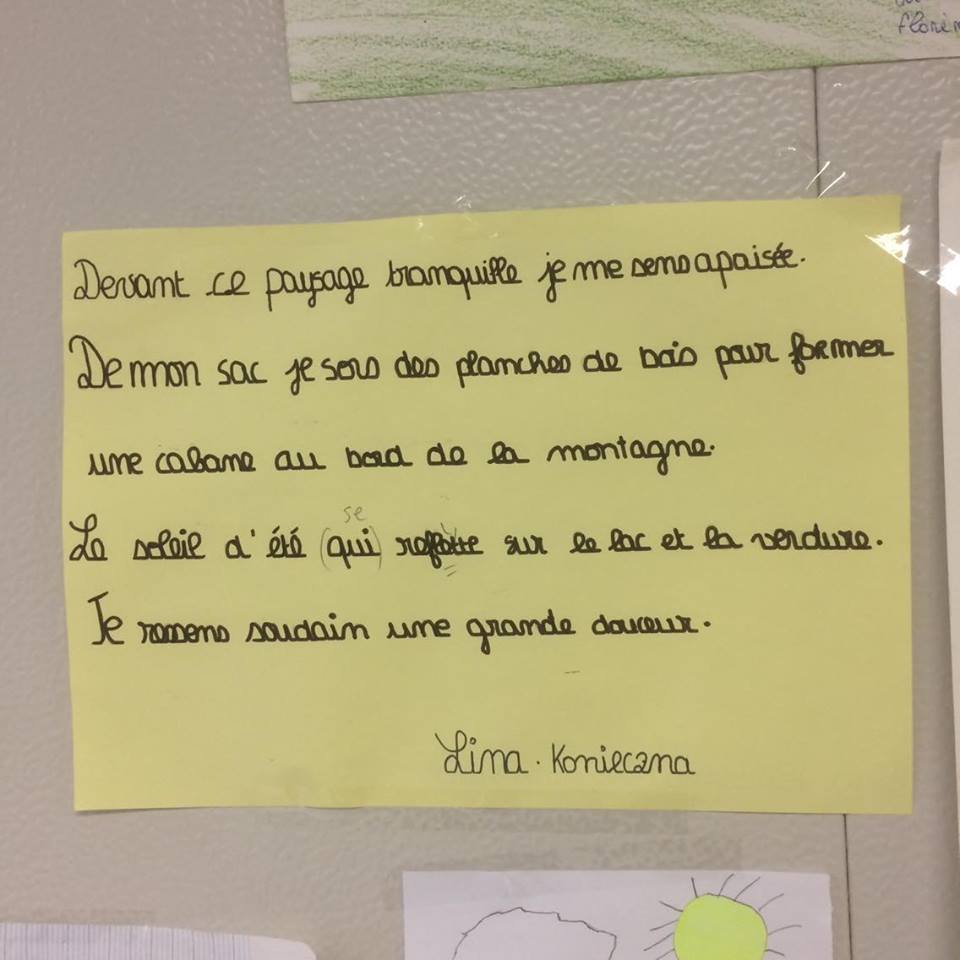 florin
Devant ce paysage tranquille je me sens apaisée.
De mon sac je sors des planches de bois pour former
une cabane au bord de la montagne.
se
Le soleil d'été (qui) reflète sur le lac et la verdure.
Je ressens soudain une grande douceur.
Lina. Konieczna